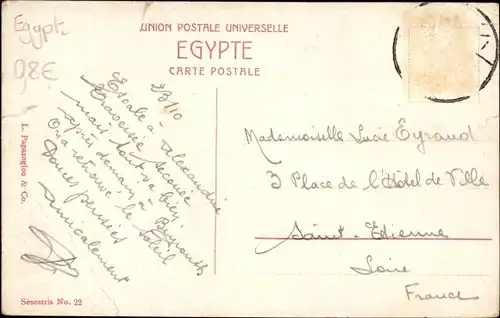 Egypt
0,8€
UNION POSTALE UNIVERSELLE
EGYPTE
CARTE POSTALE
23/10
Escale à Alexandrie
traversée secouée
mais tout va bien,
après demain, à Beyrouth
On a retrouvé le soleil
Douces pensées
amicalement
Mademoiselle Lucie Eyraud
3 Place de l'Hôtel de Ville
Saint-Etienne
Loire
France
L. Papazoglou & Co.
Sesostris No. 22